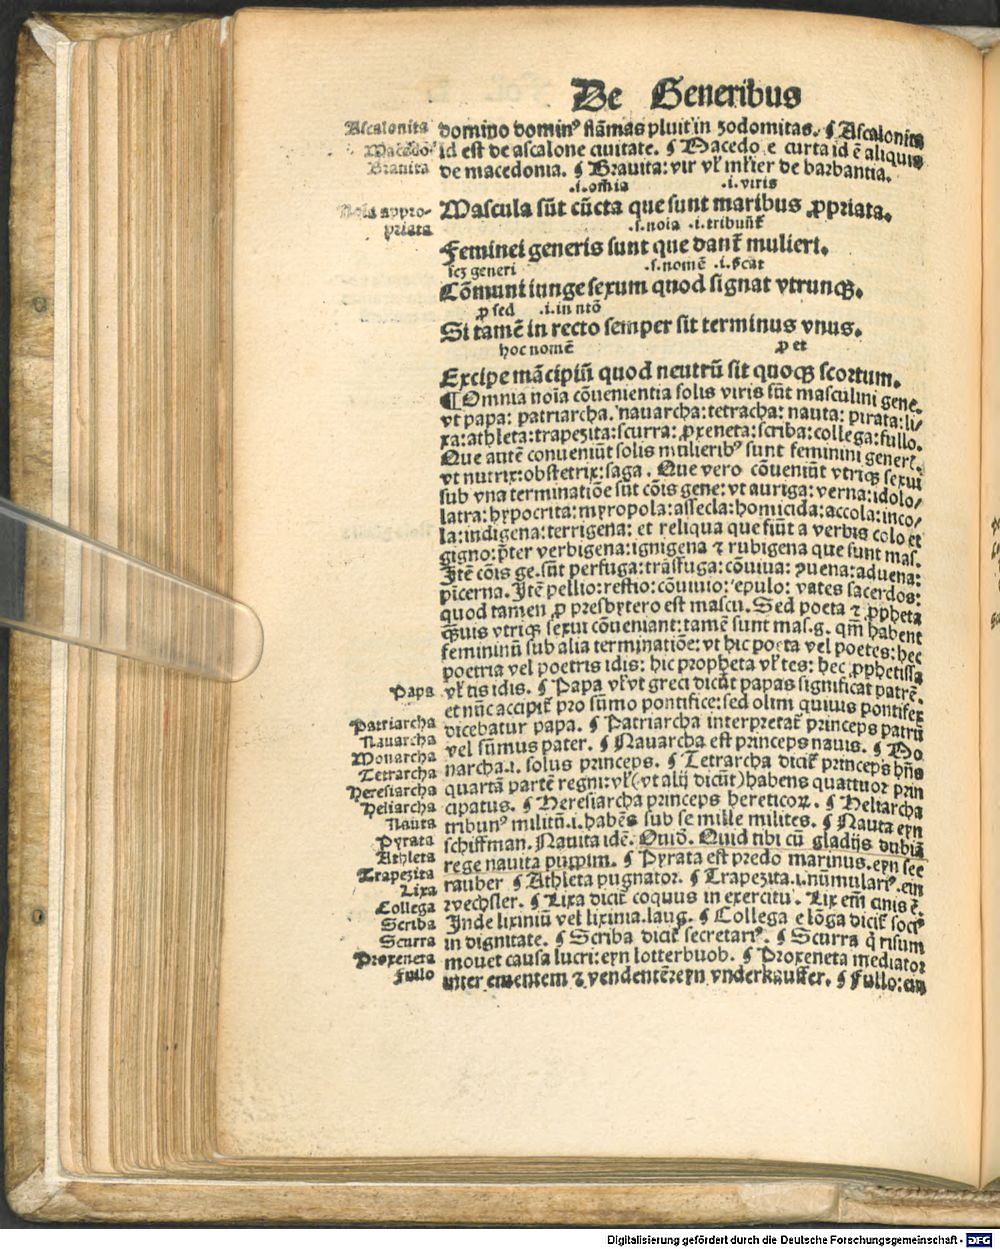 De Generibus
Ascalonita domino dominꝰ flāmas pluit in zodomitas. ¶ Ascalonita
Macedo id est de ascalone ciuitate. ¶ Macedo e curta id ē aliquis
Brauita de macedonia. ¶ Brauita: vir vł młier de barbantia.
.i. om̄ia .i. viris
Noīa appro- Mascula sūt cūcta que sunt maribus ꝓpriata.
priata .s. noīa .i. tribuūt
Feminei generis sunt que dant mulieri.
scꝫ generi .s. nomē
Cōmuni iunge sexum quod signat vtrunqꝫ.
ꝓ sed .i. in ntō
Si tamē in recto semper sit terminus vnus.
hoc nomē ꝓ et
Excipe mācipiū quod neutrū sit quoqꝫ scortum.
¶ Omnia noīa cōuenientia solis viris sūt masculini gene.
vt papa: patriarcha. nauarcha: tetracha: nauta: pirata: li/
xa: athleta: trapezita: scurra: ꝓxeneta: scriba: collega: fullo.
Que autē conueniūt solis mulieribꝰ sunt feminini gener̄.
vt nutrix: obstetrix: saga. Que vero cōueniūt vtriqꝫ sexui
sub vna terminatiōe sūt cōis gene: vt auriga: verna: idolo/
latra: hypocrita: myropola: assecla: homicida: accola: inco/
la: indigena: terrigena: et reliqua que fiūt a verbis colo et
gigno: p̄ter verbigena: ignigena ⁊ rubigena que sunt mas.
Itē cōis ge. sūt perfuga: trāsfuga: cōuiua: aduena:
pīcerna. Itē pellio: restio: cōuiuio: epulo: vates sacerdos:
quod tamen ꝓ presbytero est mascu. Sed poeta ⁊ ꝓpheta
qꝫuis vtriqꝫ sexui cōueniant: tamē sunt mas. g. qm̄ habent
femininū sub alia terminatiōe: vt hic poeta vel poetes: hec
poetria vel poetris idis: hic propheta vł tes: hec ꝓphetissa
Papa vł tis idis. ¶ Papa vł vt greci dicūt papas significat patrē.
et nūc accipit̄ pro sūmo pontifice: sed olim quiuis pontifex
Patriarcha dicebatur papa. ¶ Patriarcha interpretat̄ princeps patrū
Nauarcha vel sūmus pater. ¶ Nauarcha est princeps nauis. ¶ Mo
Monarcha narcha .i. solus princeps. ¶ Tetrarcha dicit̄ princeps hn̄s
Tetrarcha quartā partē regni: vł (vt alij dicūt) habens quattuor prin
Heresiarcha cipatus. ¶ Heresiarcha princeps hereticoꝝ. ¶ Heliarcha
Heliarcha tribunꝰ militū .i. habēs sub se mille milites. ¶ Nauta eyn
Nauta schiffman. Nauita idē. Ouid. Quid tibi cū gladijs dubiā
Pyrata rege nauita puppim. ¶ Pyrata est predo marinus. eyn see
Athleta rauber ¶ Athleta pugnator. ¶ Trapezita .i. nūmulariꝰ. ein
Trapezita wechsler. ¶ Lixa dicit̄ coquus in exercitu. Lix em̄ cinis ē.
Lixa Inde lixiniū vel lixinia. laug. ¶ Collega e lōga dicit̄ sociꝰ
Collega in dignitate. ¶ Scriba dicit̄ secretariꝰ. ¶ Scurra q̄ risum
Scriba mouet causa lucri: eyn lotterbuob. ¶ Proxeneta mediator
Scurra inter ementem ⁊ vendentē: eyn vnderkauffer. ¶ Fullo: ein
Proxeneta
Fullo
Digitalisierung gefördert durch die Deutsche Forschungsgemeinschaft - DFG